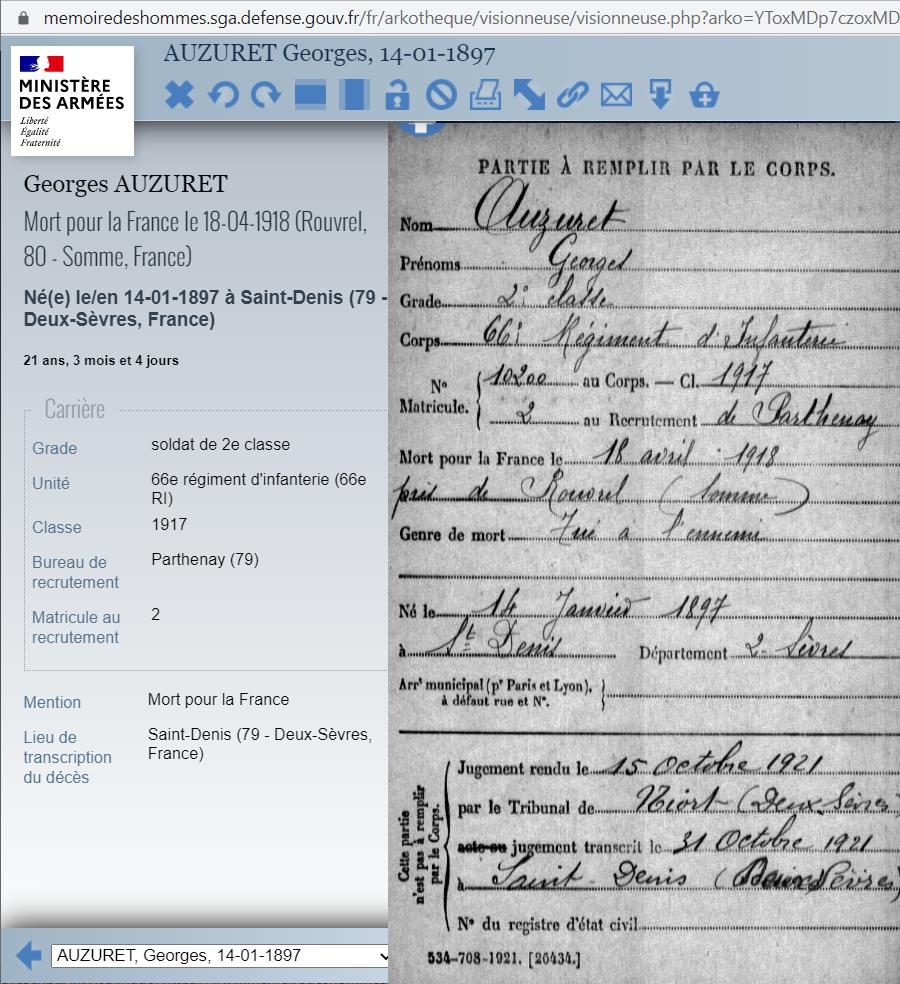 memoiredeshommes.sga.defense.gouv.fr/fr/arkotheque/visionneuse/visionneuse.php?arko=YToxMDp7czoxMD
AUZURET Georges, 14-01-1897
MINISTÈRE
DES ARMÉES
Liberté
Égalité
Fraternité
Georges AUZURET
Mort pour la France le 18-04-1918 (Rouvrel,
80 - Somme, France)
Né(e) le/en 14-01-1897 à Saint-Denis (79 -
Deux-Sèvres, France)
21 ans, 3 mois et 4 jours
Carrière
Grade soldat de 2e classe
Unité 66e régiment d'infanterie (66e
RI)
Classe 1917
Bureau de Parthenay (79)
recrutement
Matricule au 2
recrutement
Mention Mort pour la France
Lieu de Saint-Denis (79 - Deux-Sèvres,
transcription France)
du décès
AUZURET, Georges, 14-01-1897
PARTIE À REMPLIR PAR LE CORPS.
Nom Auzuret
Prénoms Georges
Grade 2e classe
Corps 66e Régiment d'Infanterie
No 10200 au Corps. — Cl. 1917
Matricule. 2 au Recrutement de Parthenay
Mort pour la France le 18 avril 1918
près de Rouvrel (Somme)
Genre de mort Tué à l'ennemi
Né le 14 Janvier 1897
à St Denis Département 2 Sèvres
Arrt municipal (pr Paris et Lyon),
à défaut rue et No.
Cette partie
n'est pas à remplir
par le Corps.
Jugement rendu le 15 Octobre 1921
par le Tribunal de Niort (Deux Sèvres)
acte ou jugement transcrit le 31 Octobre 1921
à Saint-Denis (Deux Sèvres)
No du registre d'état civil
534-708-1921. [26434.]